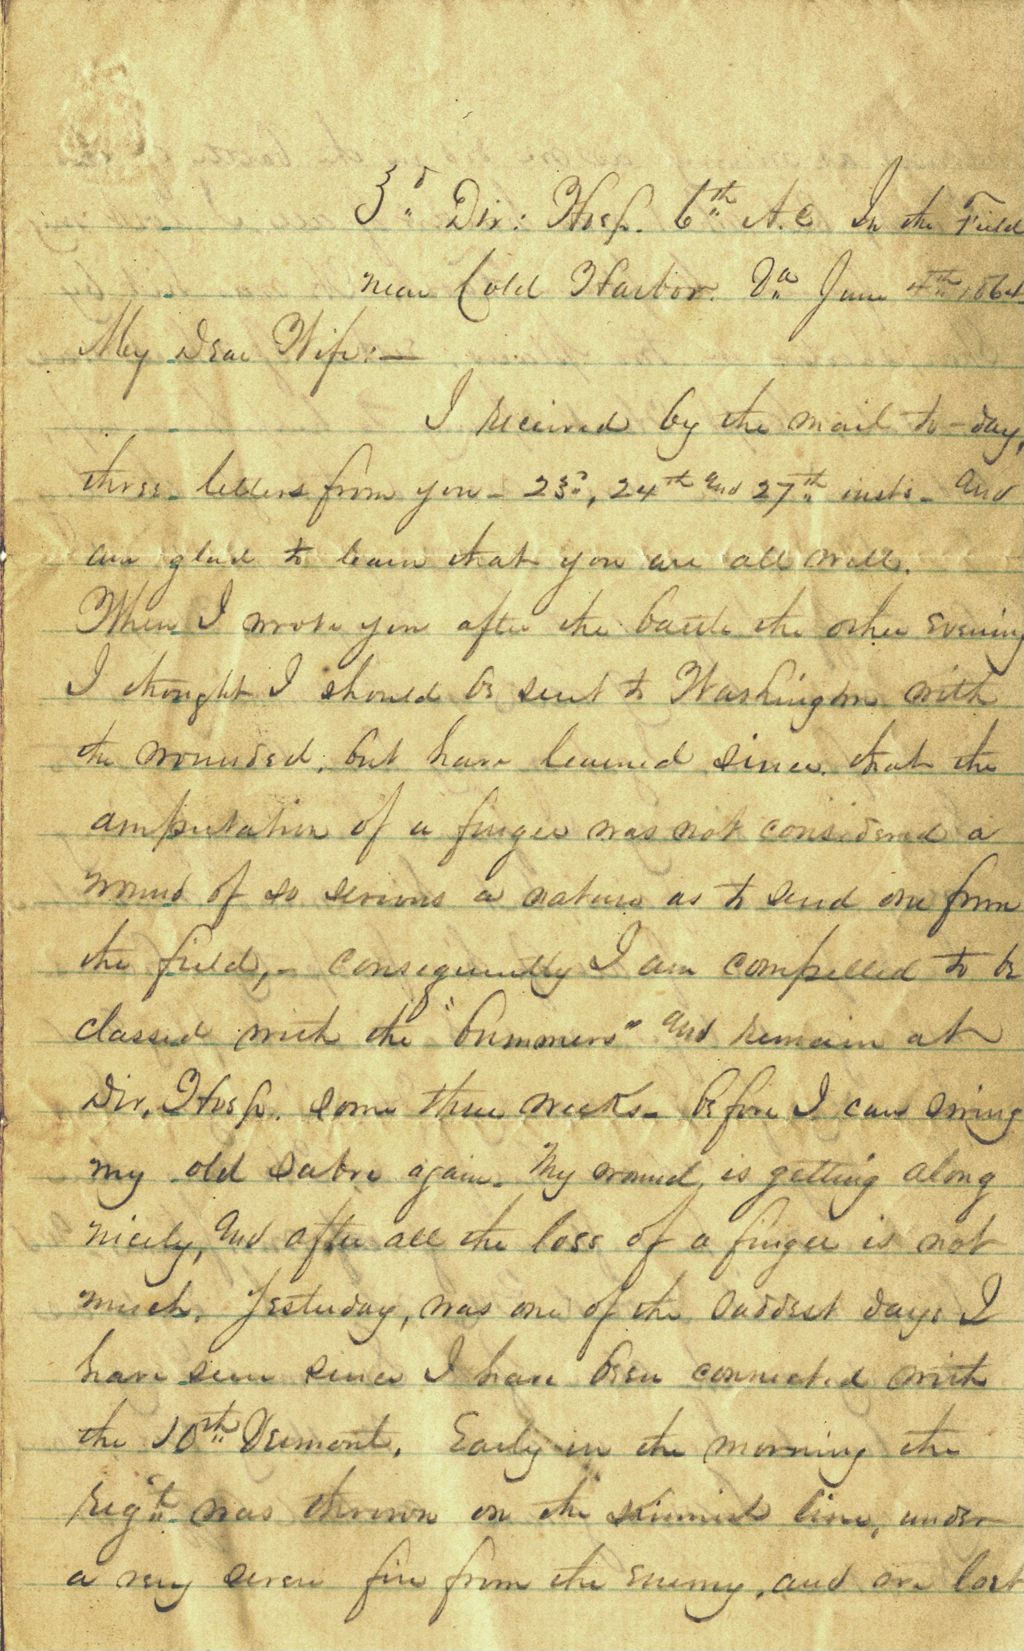 3d Div: Hosp. 6th A.C. In the Field
near Cold Harbor. Va June 4th 1864
My Dear Wife:—
I received by the mail to-day,
three letters from you - 23d, 24th and 27th insts - and
am glad to learn that you are all well.
When I wrote you after the battle the other evening
I thought I should be sent to Washington with
the wounded, but have learned since that the
amputation of a finger was not considered a
wound of so serious a nature as to send one from
the field,- consequently I am compelled to be
classed with the "bummers" and remain at
Div. Hosp. some three weeks - before I can swing
my old sabre again. My wound is getting along
nicely, and after all the loss of a finger is not
much. Yesterday, was one of the saddest days I
have seen since I have been connected with
the 10th Vermont. Early in the morning the
Regt. was thrown on the skirmish line, under
a very severe fire from the enemy, and we lost